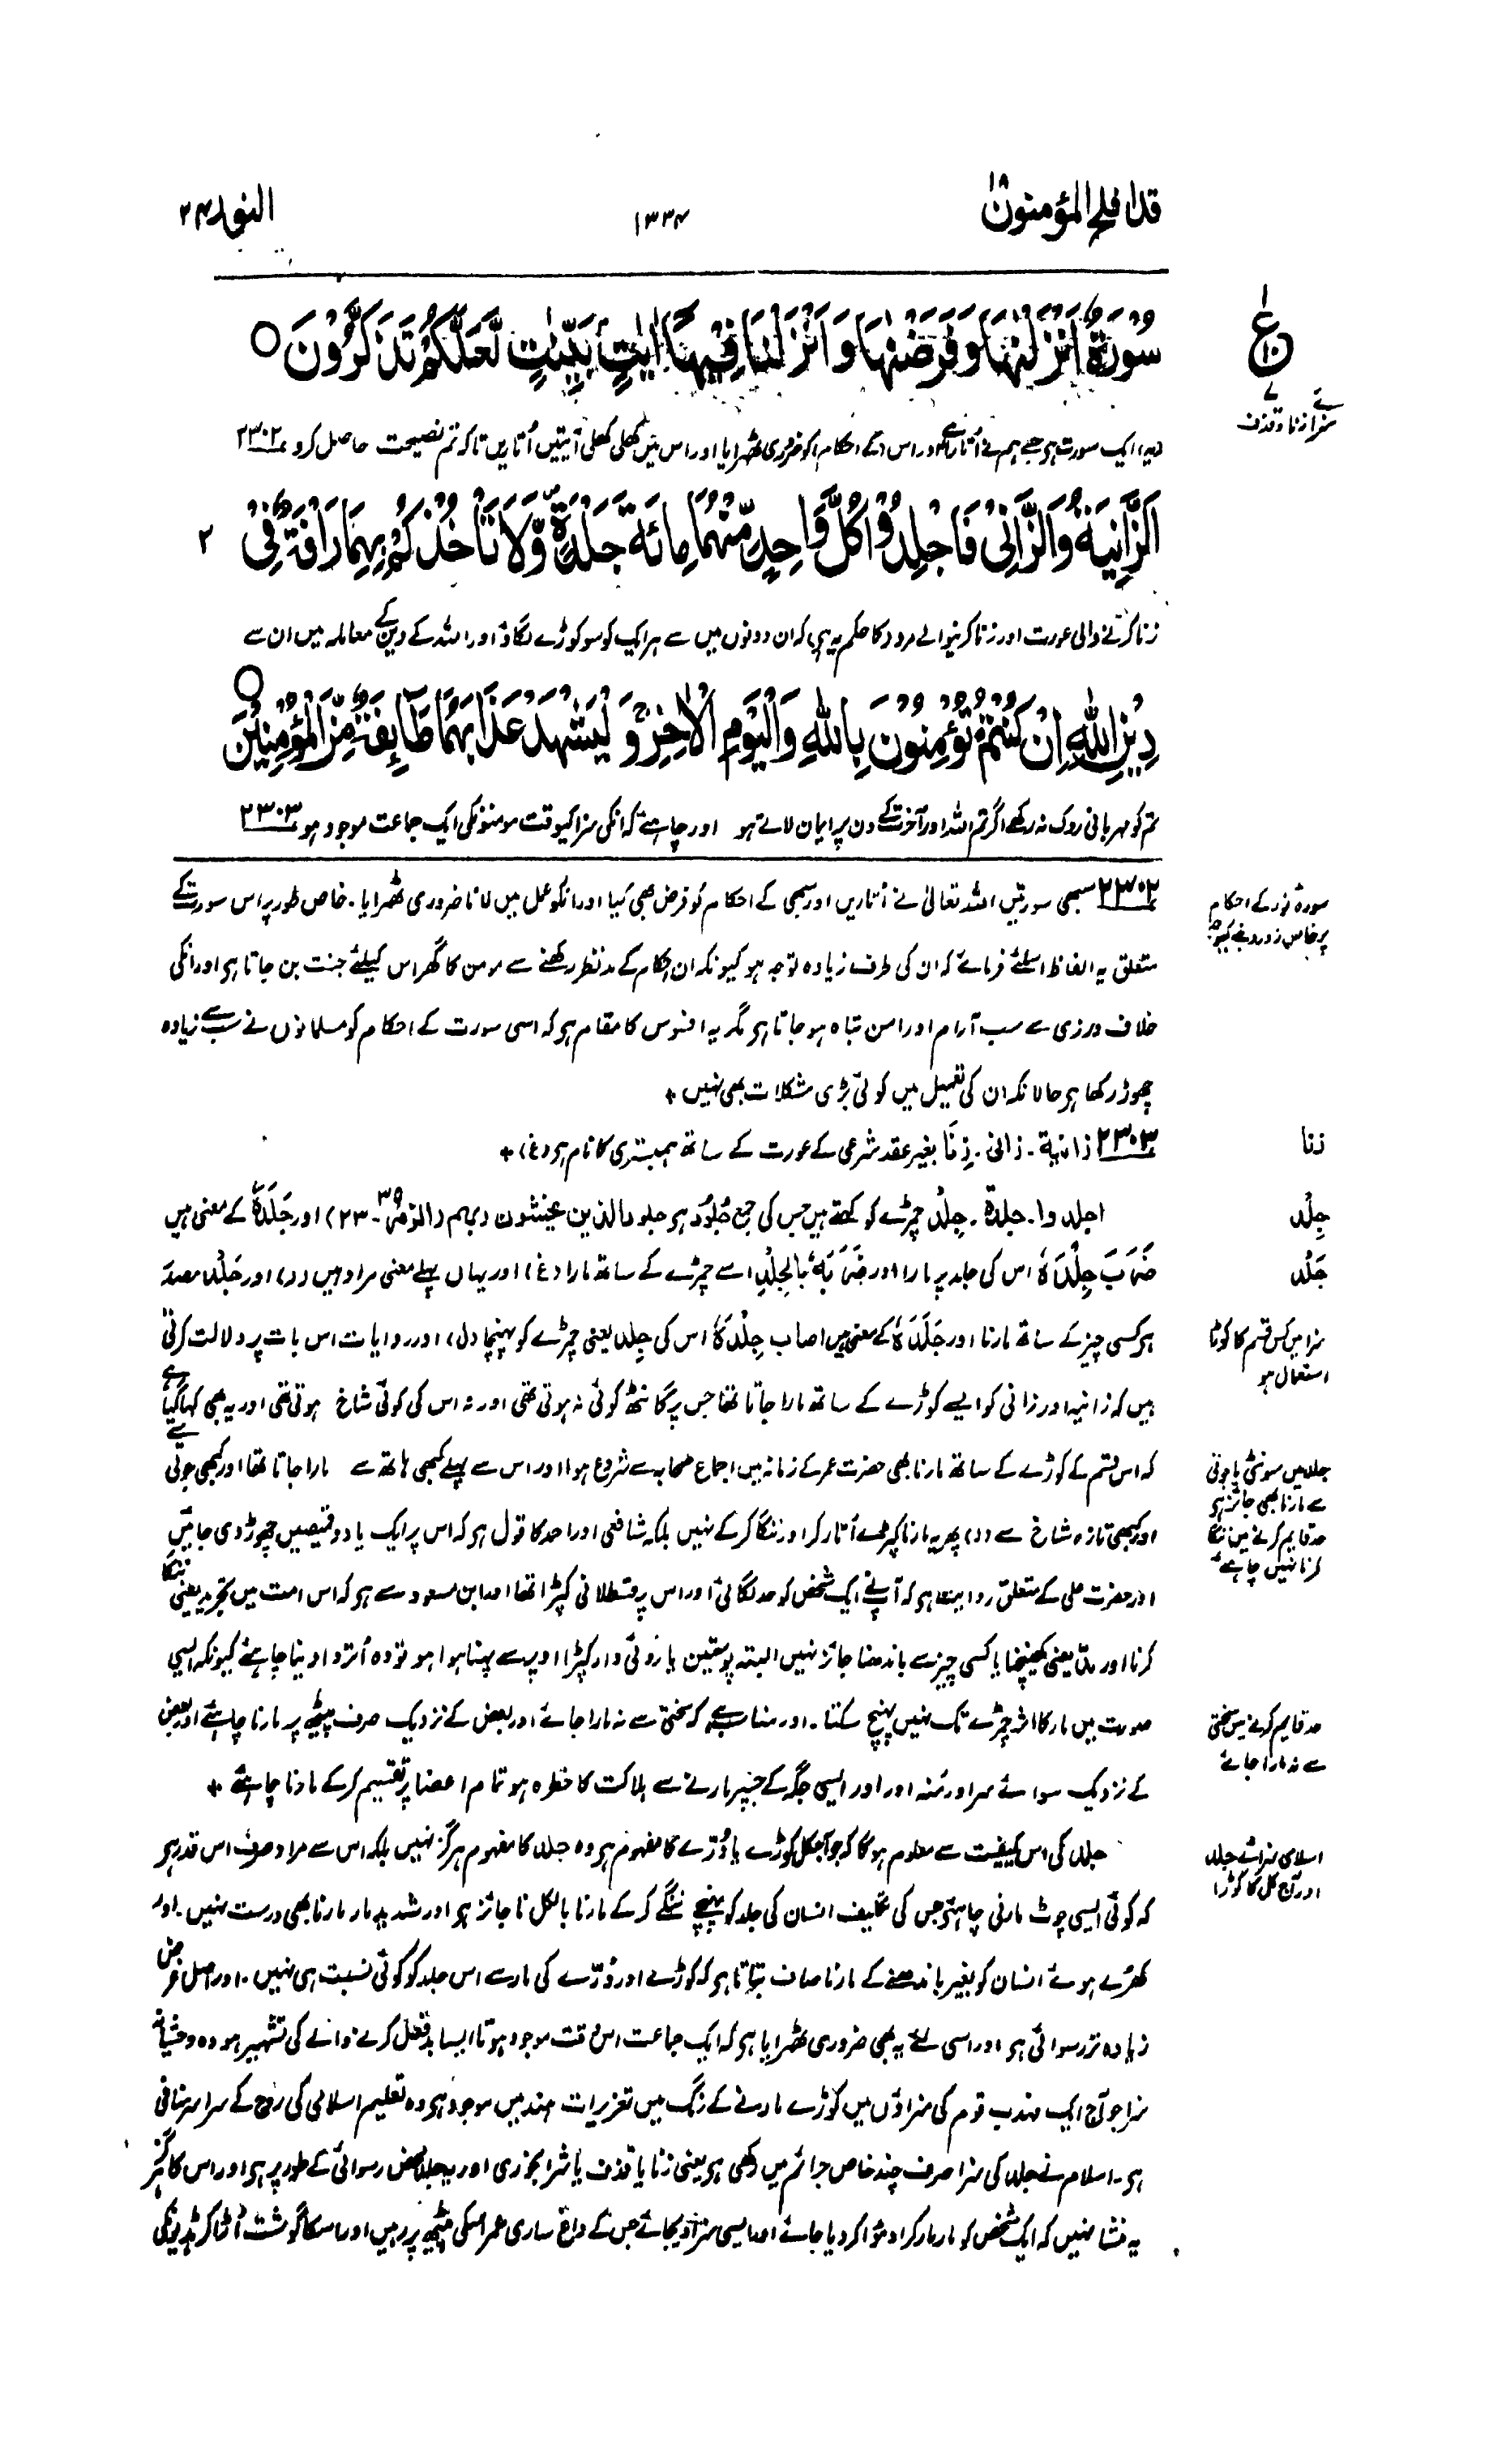 قد افلح المؤمنون ۱۸
۱۳۳۴
النور ۲۴
سُوْرَةٌ اَنْزَلْنٰهَا وَفَرَضْنٰهَا وَاَنْزَلْنَا فِيْهَاۤ اٰيٰتٍۭ بَيِّنٰتٍ لَّعَلَّكُمْ تَذَكَّرُوْنَ ○
ع
سزائے زنا و قذف
(یہ) ایک سورت ہو جسے ہم نے اُتارا ہے اور اس (کے احکام) کو ضروری ٹھہرایا اور اس میں کھلی کھلی آیتیں اُتاریں تاکہ تم نصیحت حاصل کرو ۲۳۰۲
اَلزَّانِيَةُ وَالزَّانِیْ فَاجْلِدُوْا كُلَّ وَاحِدٍ مِّنْهُمَا مِائَةَ جَلْدَةٍ ۪ وَّلَا تَاْخُذْكُمْ بِهِمَا رَاْفَةٌ فِیْ
۲
زنا کرنے والی عورت اور زنا کرنیوالے مرد (کا حکم یہ ہی) کہ ان دونوں میں سے ہر ایک کو سو کوڑے لگاؤ اور اللہ کے دین کے معاملہ میں ان سے
دِيْنِ اللّٰهِ اِنْ كُنْتُمْ تُؤْمِنُوْنَ بِاللّٰهِ وَالْيَوْمِ الْاٰخِرِ ۚ وَلْيَشْهَدْ عَذَابَهُمَا طَآئِفَةٌ مِّنَ الْمُؤْمِنِيْنَ ○
تم کو مہربانی روک نہ رکھے اگر تم اللہ اور آخرت کے دن پر ایمان لاتے ہو اور چاہئے کہ انکی سزا کیوقت مومنونکی ایک جماعت موجود ہو ۲۳۰۳
۲۳۰۲ سبھی سورتیں اللہ تعالیٰ نے اُتاریں اور سبھی کے احکام کو فرض بھی کیا اور انکو عمل میں لانا ضروری ٹھہرایا۔ خاص طور پر اس سورت کے
سورۂ نور کے احکام
پر خاص زور دینے کیوجہ
متعلق یہ الفاظ اسلئے فرمائے کہ ان کی طرف زیادہ توجہ ہو کیونکہ ان احکام کے مدنظر رکھنے سے مومن کا گھر اس کیلئے جنت بن جاتا ہو اور انکی
خلاف ورزی سے سب آرام اور امن تباہ ہو جاتا ہو مگر یہ افسوس کا مقام ہو کہ اسی سورت کے احکام کو مسلمانوں نے سب سے زیادہ
چھوڑ رکھا ہو حالانکہ ان کی تعمیل میں کوئی بڑی مشکلات بھی نہیں +
۲۳۰۳ زانیۃ۔ زانی۔ زِنَا بغیر عقد شرعی کے عورت کے ساتھ ہمبستری کا نام ہو (غ) +
زنا
اجلدوا۔ جلدۃ۔ جِلْد چمڑے کو کہتے ہیں جس کی جمع جُلُوْد ہو جلود الذین یخشون ربہم (الزمر ۳۹۔ ۲۳) اور جَلَدَہٗ کے معنی ہیں
جِلْد
ضَرَبَ جِلْدَہٗ اس کی جلد پر مارا اور ضَرَبَہٗ بالجِلْدِ اسے چمڑے کے ساتھ مارا (غ) اور یہاں پہلے معنی مراد ہیں (ر) اور جَلْد مصدر
جَلْد
ہو کسی چیز کے ساتھ مارنا اور جَلَدَہٗ کے معنی ہیں اصاب جِلْدَہٗ اس کی جِلد یعنی چمڑے کو پہنچا (ل)، اور روایات اس بات پر دلالت کرتی
سزا میں کس قسم کا کوڑا
استعمال ہو
ہیں کہ زانیہ اور زانی کو ایسے کوڑے کے ساتھ مارا جاتا تھا جس پر گانٹھ کوئی نہ ہوتی تھی اور نہ اس کی کوئی شاخ ہوتی تھی اور یہ بھی کہا گیا ہے
کہ اس قسم کے کوڑے کے ساتھ مارنا بھی حضرت عمر کے زمانہ میں اجماع صحابہ سے شروع ہوا اور اس سے پہلے کبھی ہاتھ سے مارا جاتا تھا اور کبھی جوتی سے
جلد میں سونٹی یا جوتی
سے مارنا بھی جائز ہو
اور کبھی تازہ شاخ سے (ر) پھر یہ مارنا کپڑے اُتار کر اور ننگا کر کے نہیں بلکہ شافعی اور احمد کا قول ہو کہ اس پر ایک یا دو قمیصیں چھوڑ دی جائیں
حد قایم کرنے میں ننگا
کرنا نہیں چاہئے
اور حضرت علی کے متعلق روایت ہو کہ آپ نے ایک شخص کو حد لگائی اور اس پر قسطلانی کپڑا تھا اور ابن مسعود سے ہو کہ اس امت میں تجرید یعنی ننگا
کرنا اور مد یعنی کھینچنا یا کسی چیز سے باندھنا جائز نہیں البتہ پوستین یا روئی دار کپڑا اوپر سے پہنا ہوا ہو تو وہ اُتروا دینا چاہئے کیونکہ ایسی
صورت میں مار کا اثر چمڑے تک نہیں پہنچ سکتا۔ اور مناسب ہے کہ سختی سے نہ مارا جائے اور بعض کے نزدیک صرف پیٹھ پر مارنا چاہئے اور بعض
حد قایم کرنے میں سختی
سے نہ مارا جائے
کے نزدیک سوائے سر اور مُنہ اور اور ایسی جگہ کے جسپر مارنے سے ہلاکت کا خطرہ ہو تمام اعضا پر تقسیم کر کے مارنا چاہئے +
جلد کی اس کیفیت سے معلوم ہو گا کہ جو آجکل کوڑے یا دُرّے کا مفہوم ہو وہ جلد کا مفہوم ہرگز نہیں بلکہ اس سے مراد صرف اس قدر ہو
اسلامی سزائے جلد
اور آج کل کا کوڑا
کہ کوئی ایسی چوٹ مارنی چاہئے جس کی تکلیف انسان کی جلد کو پہنچے ننگے کر کے مارنا بالکل ناجائز ہو اور شدید مار مارنا بھی درست نہیں۔ اور
کھڑے ہوئے انسان کو بغیر باندھنے کے مارنا صاف بتاتا ہو کہ کوڑے اور دُرّے کی مار سے اس جلد کو کوئی نسبت ہی نہیں۔ اور اصل غرض
زیادہ تر رسوائی ہو اور اسی لئے یہ بھی ضروری ٹھہرایا ہو کہ ایک جماعت اس وقت موجود ہو تا ایسا بد فعل کرنے والے کی تشہیر ہو وہ وحشیانہ
سزا جو آج ایک مہذب قوم کی سزاؤں میں کوڑے مارنے کے رنگ میں تعزیرات ہند میں موجود ہو وہ تعلیم اسلامی کی روح کے سراسر منافی
ہو۔ اسلام نے جلد کی سزا صرف چند خاص جرائم میں رکھی ہو یعنی زنا یا قذف یا شرابخوری اور یہ جلد محض رسوائی کے طور پر ہو اور اس کا ہرگز
یہ منشا نہیں کہ ایک شخص کو مار مار کر ادھ مؤا کر دیا جائے اور ایسی سزا دیجائے جس کے داغ ساری عمر اسکی پیٹھ پر رہیں اور اسکا گوشت اُٹھا کر ہڈیونکی